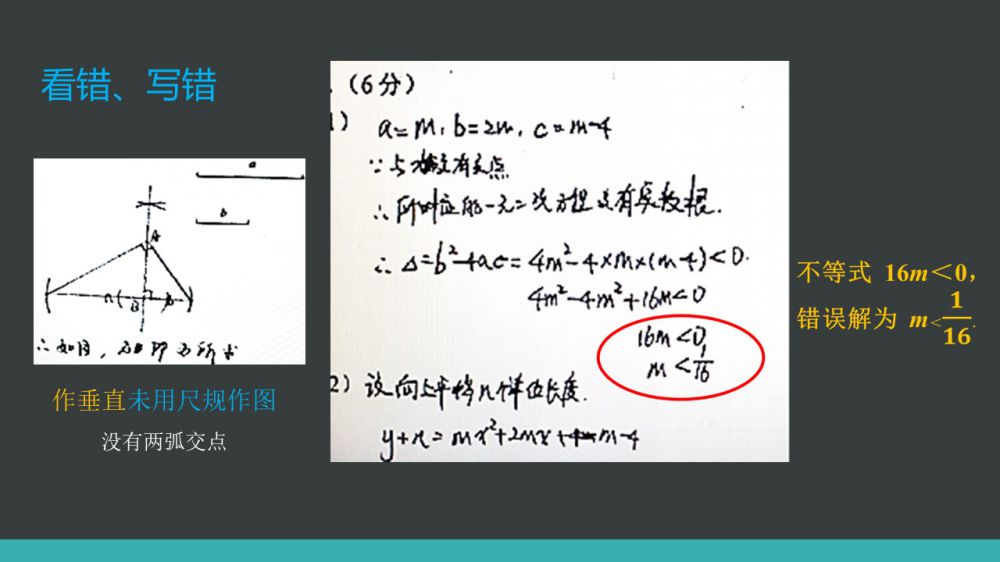 看错、写错
a
b
A
B
∴如图,
作垂直未用尺规作图
没有两弧交点
(6分)
a=m, b=2m, c=m-4
∵与 有交点
∴所对应的一元二次方程没有实数根.
∴Δ=b²-4ac=4m²-4×m×(m-4)<0.
4m²-4m²+16m<0
16m<0,
m<1/16
2)设向上平移n个单位长度.
y+n=mx²+2mx+m-4
不等式 16m＜0，
错误解为 m<1/16.